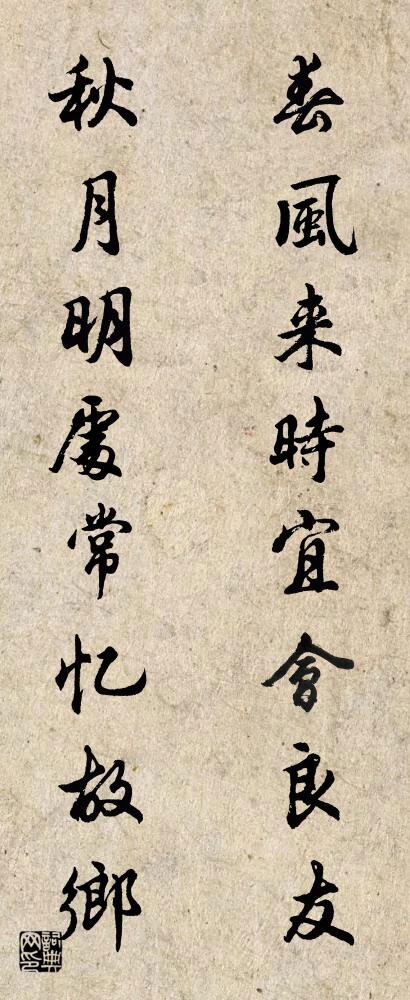 春風来時宜會良友
秋月明處常忆故鄉
詞典网印